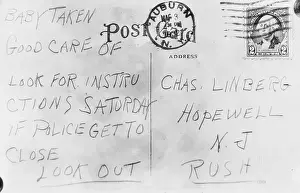 BABY TAKEN
GOOD CARE OF
LOOK FOR INSTRU
CTIONS SATURDAY
IF POLICE GET TO
CLOSE
LOOK OUT
POST CARD
ADDRESS
AUBURN
N.
CHAS. LINBERG
HOPEWELL
N. J
RUSH
2
2